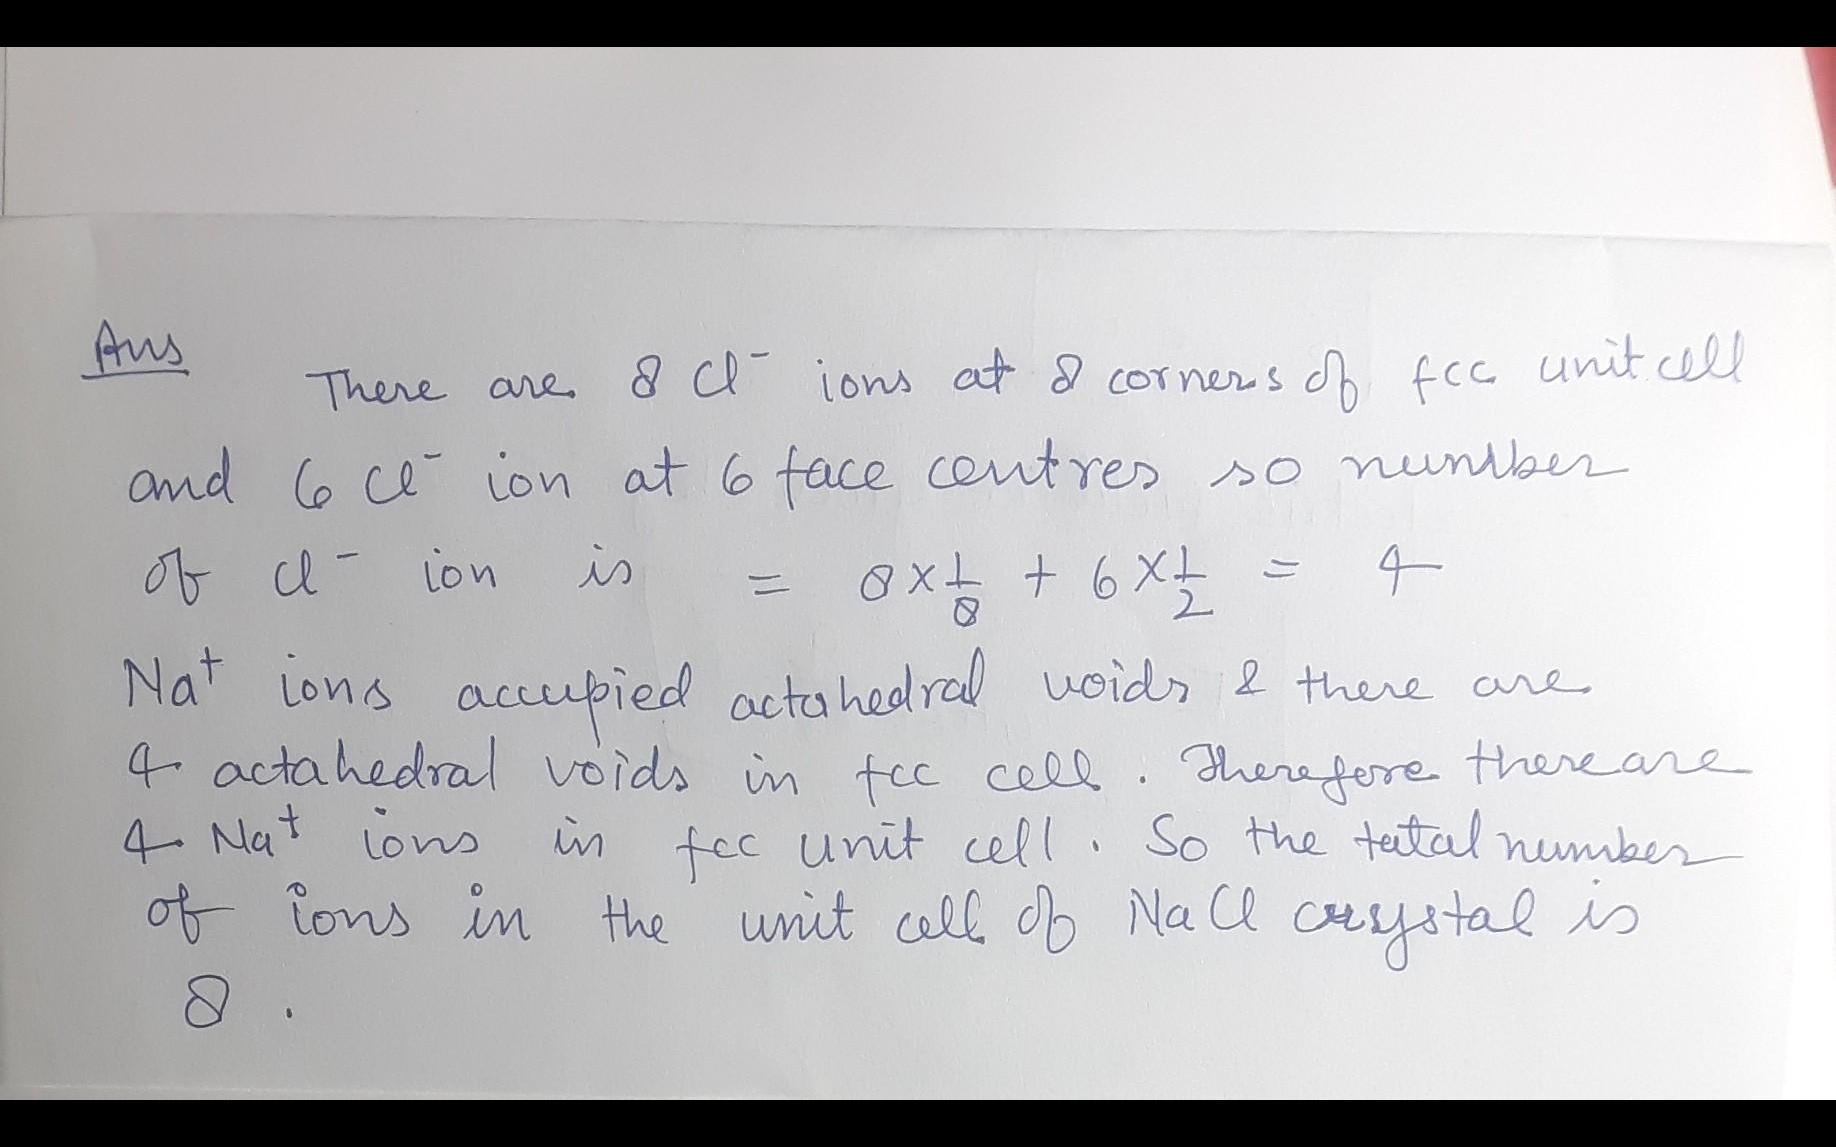 Ans
There are 8 Cl⁻ ions at 8 corners of fcc unit cell
and 6 Cl⁻ ion at 6 face centres so number
of Cl⁻ ion is = 8 × 1/8 + 6 × 1/2 = 4
Na⁺ ions accupied actahedral voids & there are
4 actahedral voids in fcc cell. Therefore there are
4 Na⁺ ions in fcc unit cell. So the tatal number
of ions in the unit cell of NaCl crystal is
8.